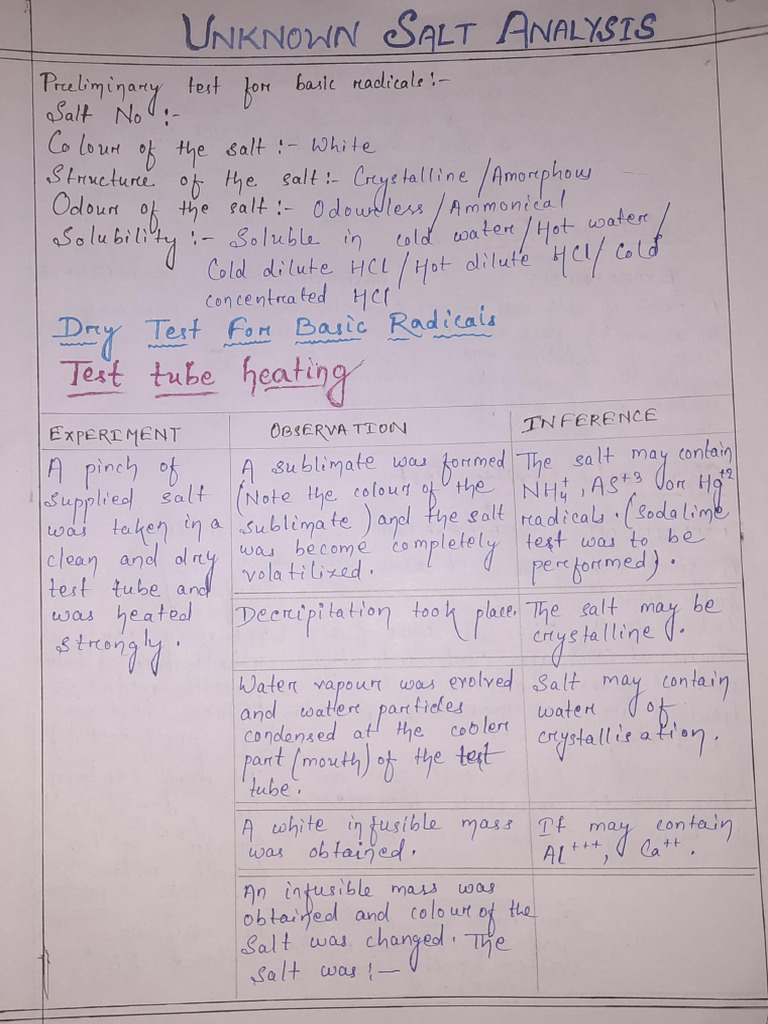 UNKNOWN SALT ANALYSIS
Preliminary test for basic radicals:-
Salt No :-
Colour of the salt :- White
Structure of the salt:- Crystalline/Amorphous
Odour of the salt :- Odourless/Ammonical
Solubility :- Soluble in cold water/Hot water/
Cold dilute HCl/Hot dilute HCl/Cold
concentrated HCl
Dry Test For Basic Radicals
Test tube heating
EXPERIMENT
A pinch of
supplied salt
was taken in a
clean and dry
test tube and
was heated
strongly.
OBSERVATION
A sublimate was formed
(Note the colour of the
sublimate) and the salt
was become completely
volatilized.
Decripitation took place.
Water vapour was evolved
and water particles
condensed at the cooler
part (mouth) of the test
tube.
A white infusible mass
was obtained.
An infusible mass was
obtained and colour of the
Salt was changed. The
salt was :-
INFERENCE
The salt may contain
NH₄⁺, AS⁺³ or Hg⁺²
radicals. (Sodalime
test was to be
performed).
The salt may be
crystalline.
Salt may contain
water of
crystallisation.
It may contain
Al⁺⁺⁺, Ca⁺⁺.